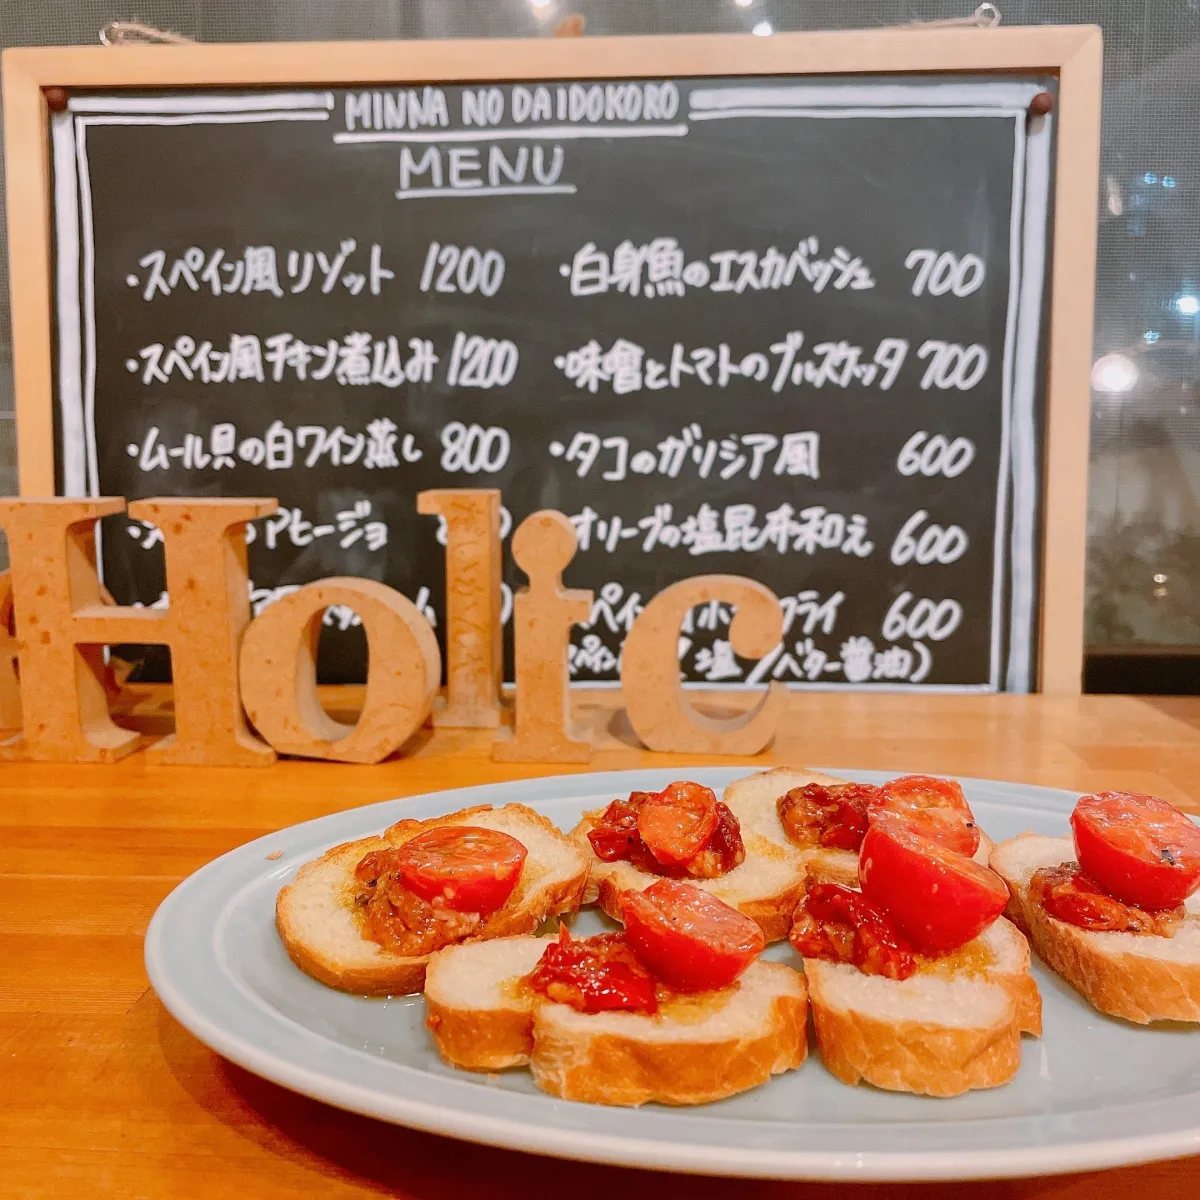 MINNA NO DAIDOKORO
MENU
・スペイン風リゾット 1200
・スペイン風チキン煮込み 1200
・ムール貝の白ワイン蒸し 800
アヒージョ
・白身魚のエスカバッシュ 700
・味噌とトマトのブルスケッタ 700
・タコのガリシア風 600
オリーブの塩昆布和え 600
フライ 600
塩/バター醤油)
Holic